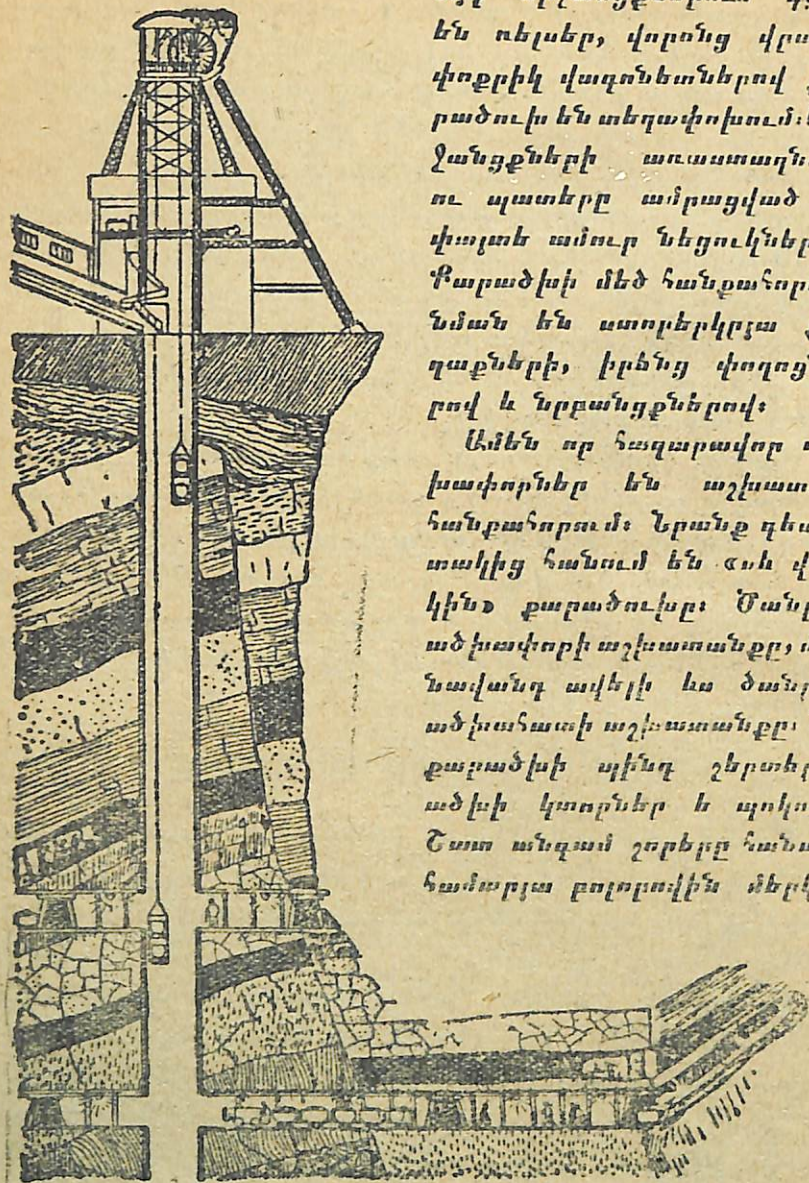 են ռելսեր, վորոնց վրա
փոքրիկ վագոնետներով
րածուխ են տեղափոխում։
Ջանցքների առաստաղն
ու պատերը ամրացված
փայտե ամուր նեցուկներ
Քարածխի մեծ հանքահոր
նման են ստորերկրյա
ղաքների, իրենց փողոց
րով և նրբանցքներով։
Ամեն որ հազարավոր
խափորներ են աշխատ
հանքահորում։ Նրանք գետ
տակից հանում են «սև վ
կին» քարածուխը։ Ծանր
ածխափորի աշխատանքը,
նավանդ ավելի ևս ծանր
ածխահատի աշխատանքը։
քարածխի պինդ շերտեր
ածխի կտորներ և պոկո
Շատ անգամ շորերը հան
համարյա բոլորովին մերկ